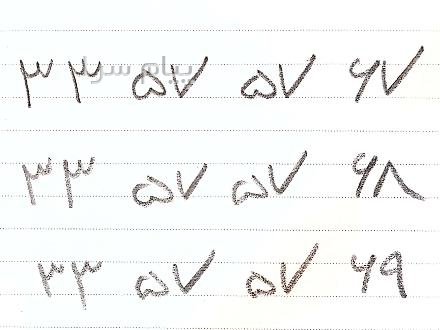 پیام سرا
۳۳ ۵۷ ۵۷ ۶۷
۳۳ ۵۷ ۵۷ ۶۸
۳۳ ۵۷ ۵۷ ۶۹